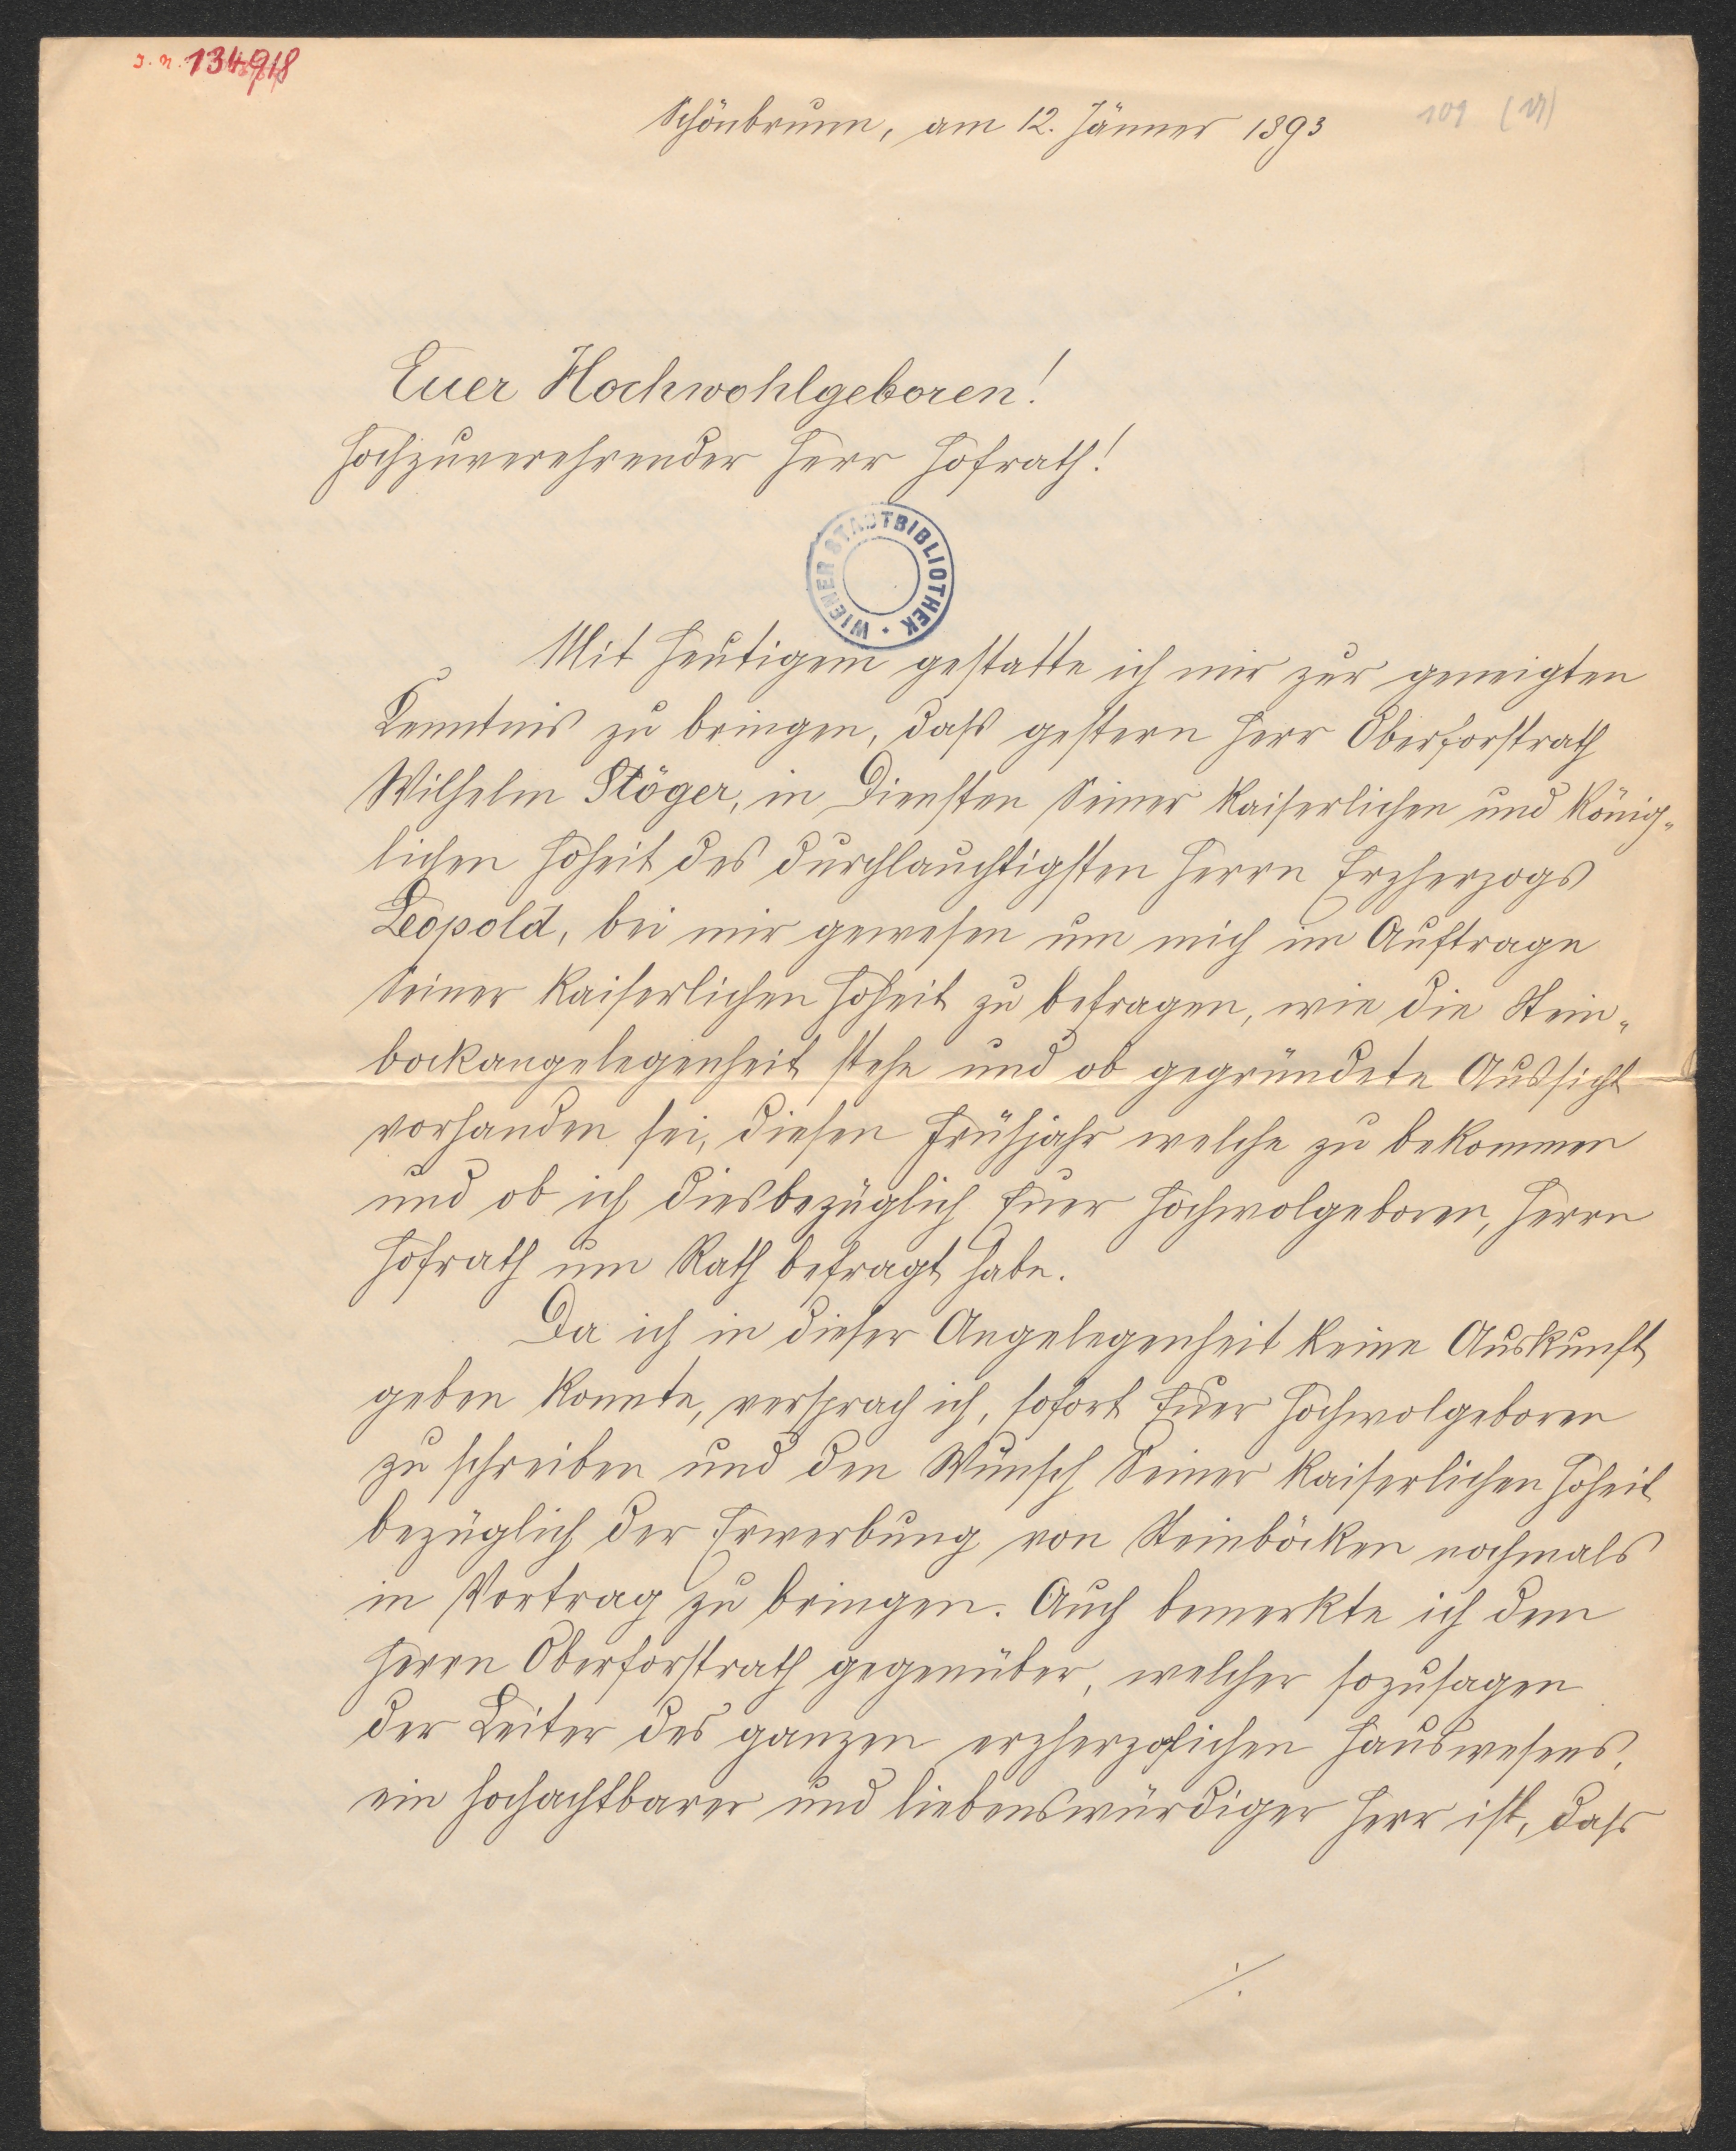 J. N. 134918
109 (4)
Schönbrunn, am 12. Jänner 1893
Euer Hochwohlgeboren!
Hochzuverehrender Herr Hofrath!
WIENER STADTBIBLIOTHEK
Mit Heutigem gestatte ich mir zur geneigten
Kenntnis zu bringen, daß gestern Herr Oberforstrath
Wilhelm Stöger, in Diensten Seiner Kaiserlichen und König-
lichen Hoheit des durchlauchtigsten Herrn Erzherzogs
Leopold, bei mir gewesen um mich im Auftrage
Seiner Kaiserlichen Hoheit zu befragen, wie die Stein-
bockangelegenheit stehe und ob gegründete Aussicht
vorhanden sei, diesen Frühjahr welche zu bekommen
und ob ich diesbezüglich Euer Hochwolgeboren, Herrn
Hofrath um Rath befragt habe.
Da ich in dieser Angelegenheit keine Auskunft
geben konnte, versprach ich, sofort Euer Hochwolgeboren
zu schreiben und den Wunsch Seiner Kaiserlichen Hoheit
bezüglich der Erwerbung von Steinböcken nochmals
in Vortrag zu bringen. Auch bemerkte ich dem
Herrn Oberforstrath gegenüber, welcher sozusagen
der Leiter des ganzen erzherzoglichen Hauswesens,
ein hochachtbarer und liebenswürdiger Herr ist, dass
./.